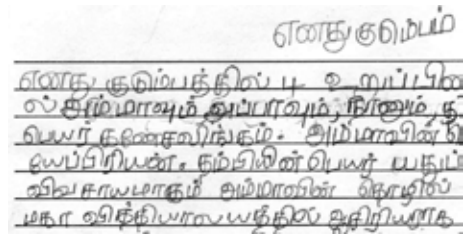 எனது குடும்பம்
எனது குடும்பத்தில் 4
ல் அம்மாவும் அப்பாவும், நானும்,
பெயர் கணேசலிங்கம். அம்மாவின்
தம்பியின் பெயர்
விவசாயமாகும் அம்மாவின் தொழில்
மகா வித்தியாலயத்தில் ஆசிரியராக